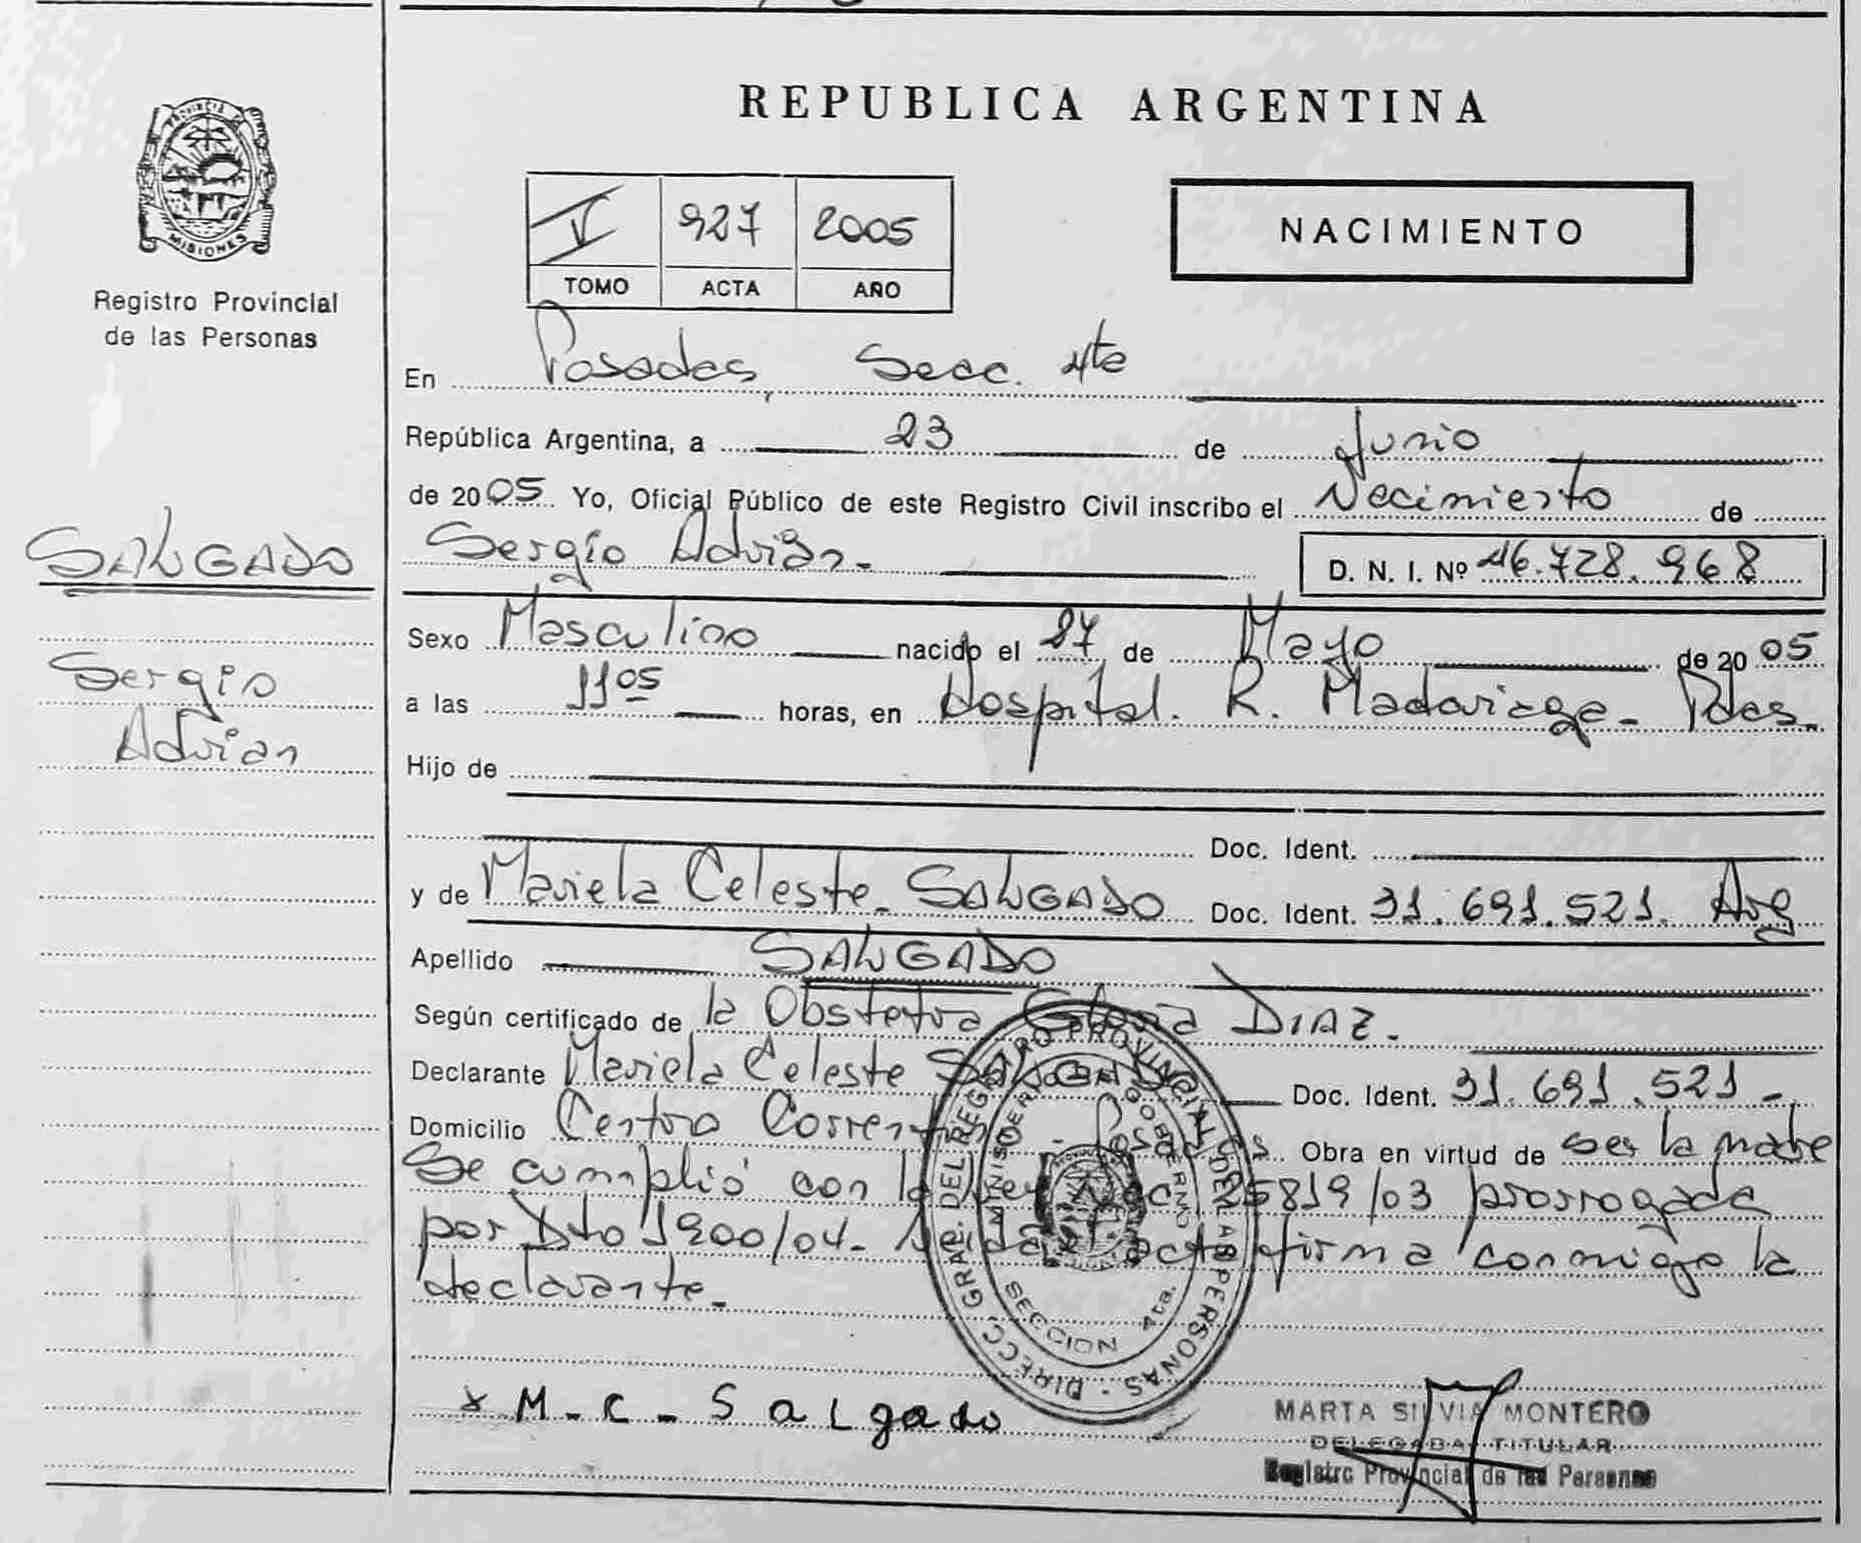 REPUBLICA ARGENTINA
PROVINCIA DE MISIONES
Registro Provincial
de las Personas
V 927 2005
TOMO ACTA AÑO
NACIMIENTO
En Posadas, Secc. 4ta
República Argentina, a 23 de Junio
de 2005 Yo, Oficial Público de este Registro Civil inscribo el Nacimiento de
Sergio Adrián.
D. N. I. Nº 46.728.968
SALGADO
Sergio
Adrian
Sexo Masculino nacido el 27 de Mayo de 2005
a las 11 05 horas, en Hospital. R. Madariaga - Pdas.
Hijo de
Doc. Ident.
y de Mariela Celeste SALGADO Doc. Ident. 31.691.521. Arg
Apellido SALGADO
Según certificado de la Obstetra Gloria DIAZ.
Declarante Mariela Celeste SALGADO Doc. Ident. 31.691.521 -
Domicilio Centro Correntino - Posadas Obra en virtud de ser la madre
Se cumplió con la Ley Nac 25819/03 prorrogada
por Dto 1900/04 - acta firma conmigo la
declarante.
DIRECC. GRAL. DEL REGISTRO PROVINCIAL DE LAS PERSONAS
MINISTERIO GOBIERNO
SECCION 4ta.
x M - C - Salgado
MARTA SILVIA MONTERO
DELEGADA TITULAR
Registro Provincial de las Personas